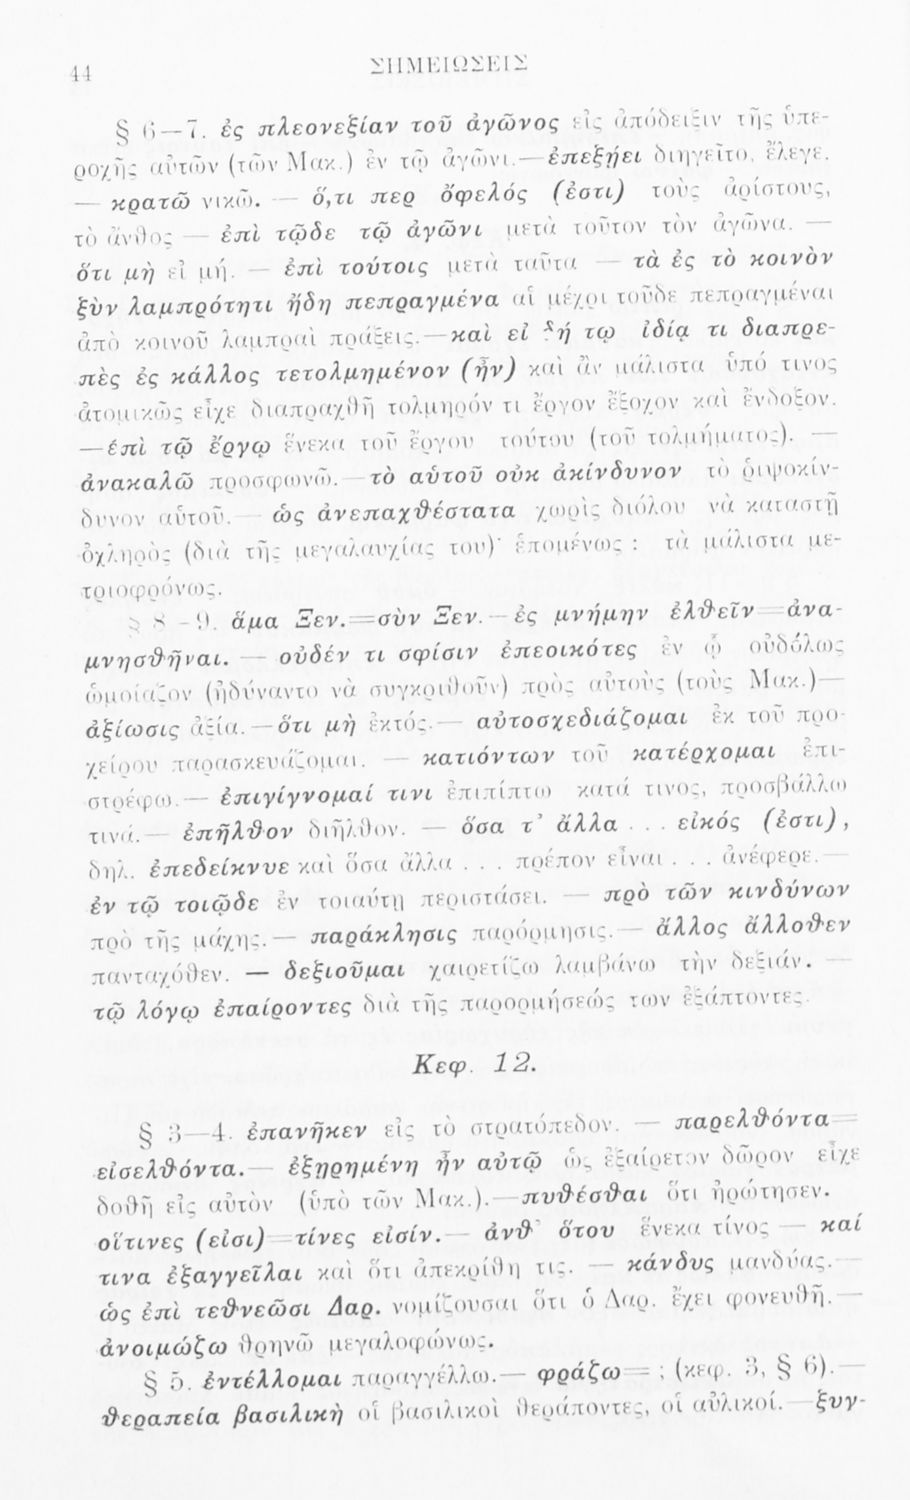 44
ΣΗΜΕΙΩΣΕΙΣ
§ 6—7. ἐς πλεονεξίαν τοῦ ἀγῶνος εἰς ἀπόδειξιν τῆς ὑπε-
ροχῆς αὐτῶν (τῶν Μακ.) ἐν τῷ ἀγῶνι.— ἐπεξῄει διηγεῖτο, ἔλεγε.
— κρατῶ νικῶ. — ὅ,τι περ ὄφελός (ἐστι) τοὺς ἀρίστους,
τὸ ἄνθος — ἐπὶ τῷδε τῷ ἀγῶνι μετὰ τοῦτον τὸν ἀγῶνα. —
ὅτι μὴ εἰ μή. — ἐπὶ τούτοις μετὰ ταῦτα — τὰ ἐς τὸ κοινὸν
ξὺν λαμπρότητι ἤδη πεπραγμένα αἱ μέχρι τοῦδε πεπραγμέναι
ἀπὸ κοινοῦ λαμπραὶ πράξεις.— καὶ εἰ δή τῳ ἰδίᾳ τι διαπρε-
πὲς ἐς κάλλος τετολμημένον (ἦν) καὶ ἂν μάλιστα ὑπό τινος
ἀτομικῶς εἶχε διαπραχθῆ τολμηρόν τι ἔργον ἔξοχον καὶ ἔνδοξον.
— ἐπὶ τῷ ἔργῳ ἕνεκα τοῦ ἔργου τούτου (τοῦ τολμήματος). —
ἀνακαλῶ προσφωνῶ. τὸ αὑτοῦ οὐκ ἀκίνδυνον τὸ ῥιψοκίν-
δυνον αὑτοῦ. — ὡς ἀνεπαχθέστατα χωρὶς διόλου νὰ καταστῇ
ὀχληρὸς (διὰ τῆς μεγαλαυχίας του)· ἑπομένως : τὰ μάλιστα με-
τριοφρόνως.
§ 8-9. ἅμα Ξεν.=σὺν Ξεν.— ἐς μνήμην ἐλθεῖν=ἀνα-
μνησθῆναι. — οὐδέν τι σφίσιν ἐπεοικότες ἐν ᾧ οὐδόλως
ὡμοίαζον (ἠδύναντο νὰ συγκριθοῦν) πρὸς αὐτοὺς (τοὺς Μακ.)—
ἀξίωσις ἀξία.— ὅτι μὴ ἐκτός.— αὐτοσχεδιάζομαι ἐκ τοῦ προ-
χείρου παρασκευάζομαι. — κατιόντων τοῦ κατέρχομαι ἐπι-
στρέφω.— ἐπιγίγνομαί τινι ἐπιπίπτω κατά τινος, προσβάλλω
τινά.— ἐπῆλθον διῆλθον. — ὅσα τ’ ἄλλα . . . εἰκός (ἐστι),
δηλ. ἐπεδείκνυε καὶ ὅσα ἄλλα . . . πρέπον εἶναι . . . ἀνέφερε.—
ἐν τῷ τοιῷδε ἐν τοιαύτῃ περιστάσει. — πρὸ τῶν κινδύνων
πρὸ τῆς μάχης.— παράκλησις παρόρμησις.— ἄλλος ἄλλοθεν
πανταχόθεν. — δεξιοῦμαι χαιρετίζω λαμβάνω τὴν δεξιάν. —
τῷ λόγῳ ἐπαίροντες διὰ τῆς παρορμήσεώς των ἐξάπτοντες.
Κεφ. 12.
§ 3—4. ἐπανῆκεν εἰς τὸ στρατόπεδον. — παρελθόντα=
εἰσελθόντα.— ἐξῃρημένη ἦν αὐτῷ ὡς ἐξαίρετον δῶρον εἶχε
δοθῆ εἰς αὐτὸν (ὑπὸ τῶν Μακ.).— πυθέσθαι ὅτι ἠρώτησεν.
οἵτινες (εἰσι)=τίνες εἰσίν.— ἀνθ’ ὅτου ἕνεκα τίνος — καί
τινα ἐξαγγεῖλαι καὶ ὅτι ἀπεκρίθη τις. — κάνδυς μανδύας.—
ὡς ἐπὶ τεθνεῶσι Δαρ. νομίζουσαι ὅτι ὁ Δαρ. ἔχει φονευθῆ.—
ἀνοιμώζω θρηνῶ μεγαλοφώνως.
§ 5. ἐντέλλομαι παραγγέλλω.— φράζω= ; (κεφ. 3, § 6).—
θεραπεία βασιλικὴ οἱ βασιλικοὶ θεράποντες, οἱ αὐλικοί. ξυγ-